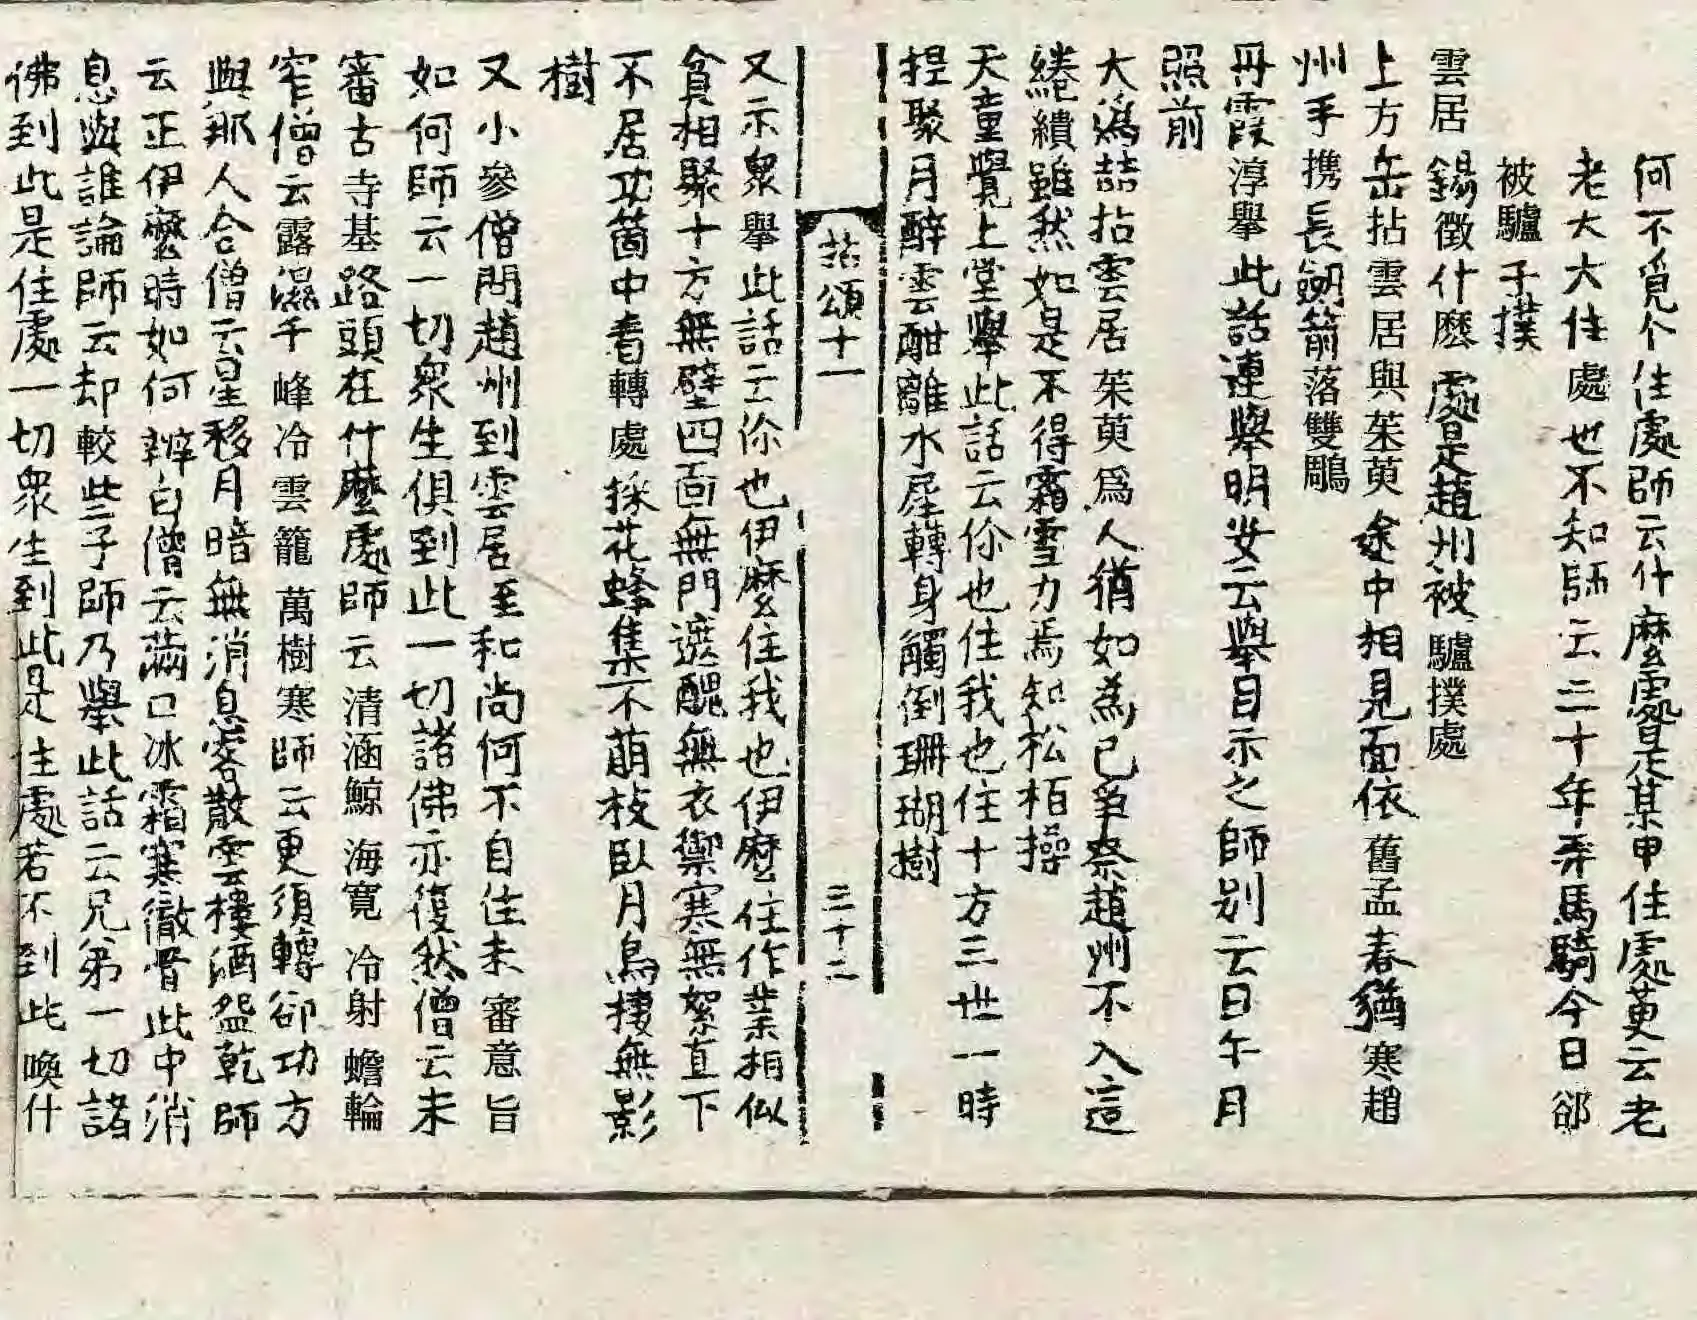 何不覓个住處師云什麽處是某甲住處萸云老
老大大住處也不知師云三十年弄馬騎今日郤
被驢子撲
雲居錫徵什麽處是趙州被驢撲處
上方岳拈雲居與茱萸途中相見面依舊孟春猶寒趙
州手携長劒箭落雙鵰
丹霞淳擧此話連擧明安云擧目示之師別云日午月
照前
大潙喆拈雲居茱萸爲人猶如爲已爭奈趙州不入這
繾繢雖然如是不得霜雪力焉知松栢操
天童覺上堂擧此話云你也住我也住十方三世一時
揑聚月醉雲酣離水犀轉身觸倒珊瑚樹
拈頌十一 三十二
又示衆擧此話云你也伊麽住我也伊麽住作業相似
貪相聚十方無壁四面無門遮醜無衣禦寒無絮直下
不居功箇中着轉處採花蜂集不萠枝臥月鳥捿無影
樹
又小參僧問趙州到雲居至和尚何不自住未審意旨
如何師云一切衆生俱到此一切諸佛亦復然僧云未
審古寺基路頭在什麽處師云清涵鯨海寬冷射蟾輪
窄僧云露濕千峰冷雲籠萬樹寒師云更須轉卻功方
與那人合僧云星移月暗無消息客散雲樓酒盌乾師
云正伊麽時如何辨白僧云滿口冰霜寒徹骨此中消
息與誰論師云却較些子師乃擧此話云兄弟一切諸
佛到此是住處一切衆生到此是住處若不到此喚什